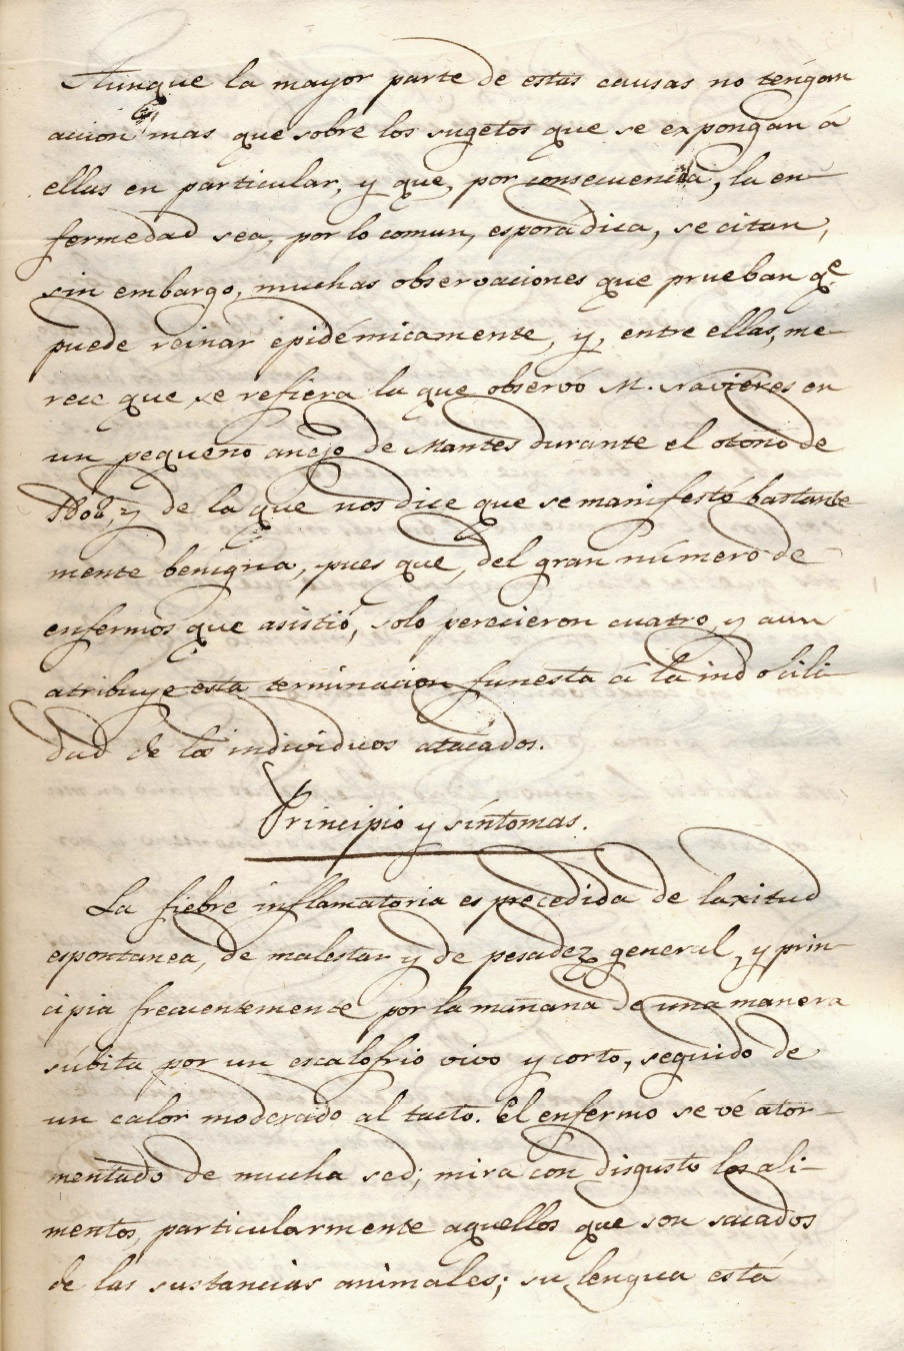 Aunque la mayor parte de estas causas no tengan
accion mas que sobre los sugetos que se expongan á
ellas en particular, y que, por consecuencia, la en-
fermedad sea, por lo comun, esporádica, se citan,
sin embargo, muchas observaciones que prueban qe
puede reinar epidémicamente, y, entre ellas, me-
rece que se refiera la que observó M. Navieres en
un pequeño anejo de Mantes durante el otoño de
y de la que nos dice que se manifestó bastante
mente benigna, pues que, del gran número de
enfermos que asistió, solo perecieron cuatro, y aun
atribuye esta terminacion funesta á la indocili-
dad de los individuos atacados.
Principio y síntomas.
La fiebre inflamatoria es precedida de laxitud
espontanea, de malestar y de pesadez general, y prin-
cipia frecuentemente por la mañana de una manera
súbita por un escalofrio vivo y corto, seguido de
un calor moderado al tacto. El enfermo se vé ator-
mentado de mucha sed; mira con disgusto los ali-
mentos, particularmente aquellos que son sacados
de las sustancias animales; su lengua está